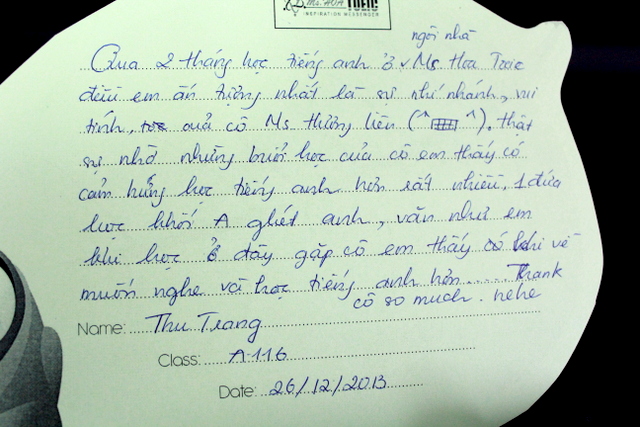 Ms. HOA TOEIC
INSPIRATION MESSENGER
ngôi nhà
Qua 2 tháng học tiếng anh ở Ms Hoa Toeic
điều em ấn tượng nhất là sự nhí nhảnh, vui
tính, của cô Ms thương liên (^ ^). thật
sự nhờ những buổi học của cô em thấy có
cảm hứng học tiếng anh hơn rất nhiều. 1 đứa
học khối A ghét anh, văn như em
khi học ở đây gặp cô em thấy có khi về
muốn nghe và học tiếng anh hơn.... Thank
cô so much. hehe
Name: Thu Trang
Class: A116
Date: 26/12/2013